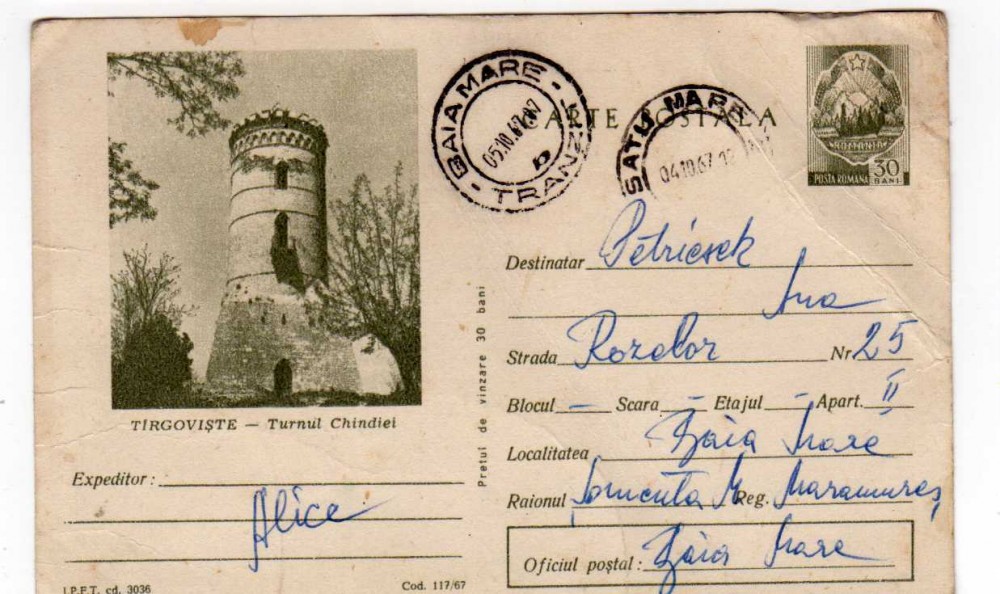 CARTE POSTALA
BAIA MARE - TRANZIT -
05.10.67
b
SATU MARE
04.10.67 12
ROMANIA
POSTA ROMANA 30 BANI
TÎRGOVIŞTE — Turnul Chindiei
Expeditor :
Alice
I.P.F.T. cd. 3036
Cod. 117/67
Prețul de vînzare 30 bani
Destinatar Petricsek
Ana
Strada Rozelor Nr 25
Blocul — Scara — Etajul — Apart. II
Localitatea Baia Mare
Raionul Şomcuta M Reg. Maramureş
Oficiul poştal : Baia Mare